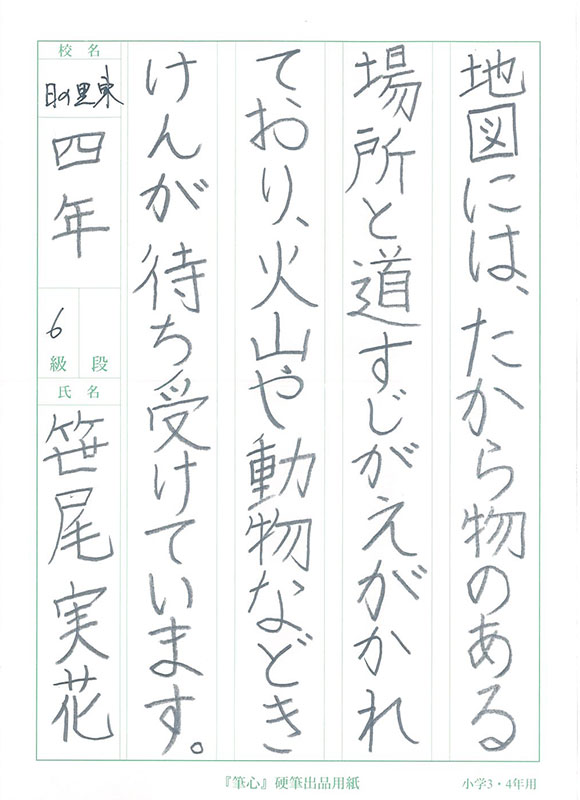 地図には、たから物のある
場所と道すじがえがかれ
ており、火山や動物などき
けんが待ち受けています。
校名
日の里東
四年
6
級 段
氏名
笹尾実花
『筆心』硬筆出品用紙
小学3・4年用